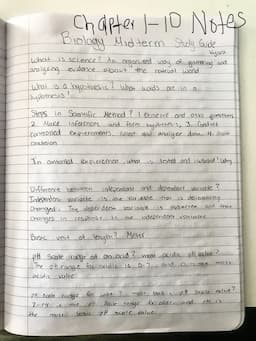 Chapter 1-10 Notes
Biology Midterm Study Guide
What is science? An organized way of gathering and
analyzing evidence about the natural world
What is a hypothesis? What words are in a
hypothesis?
Steps in Scientific Method? 1. Observe and asks questions
2. Make inferences and form hypothesis, 3. Conduct
controlled experiments, collect and analyze data 4. Draw
conclusion
In controlled experiment what is tested and Why
Difference between independent and dependent variable?
Independent variable is the variable that is
changed. The dependent variable is observed and
changes in response to the independent variable
Basic unit of length? Meter
pH Scale range of an acid? most acidic pH value?
The pH range for acids is 0-7 and 0 is the most
acidic value
pH Scale range for pH Scale value?
the most basic pH scale value